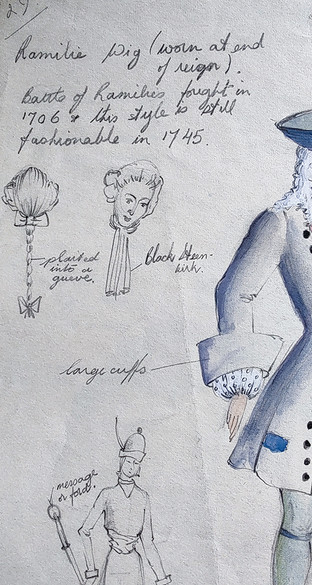 29
Ramilie Wig (worn at end
of reign).
Battle of Ramilies fought in
1706 & this style is still
fashionable in 1745.
plaited
into a
queue.
black Steen-
kirk.
large cuffs
message
or ford.